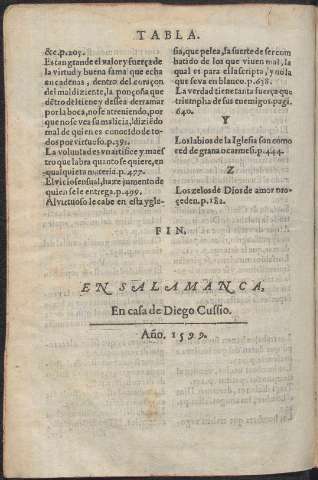 TABLA.
&c. p.205.
Es tan grande el valor y fuerça de
la virtud y buena fama que echa
en cadenas, dentro del coraçon
del maldiziente, la ponçoña que
dẽtro del tiene y dessea derramar
por la boca, no se atreuiendo, por
que no se vea su malicia, diziẽdo
mal de quien es conocido de to-
dos por virtuoso. p.391.
La voluntad es vn artifice y maes
tro que labra quanto se quiere, en
qualquiera materia. p.477.
El vicio sensual, haze jumento de
quien se le entrega. p.499.
Al virtuoso le cabe en esta ygle-
sia, que pelea, la suerte de ser com
batido de los que viuen mal, la
qual es para el la scripta, y no la
que se va en blanco. p.638.
La verdad tiene tanta fuerça que
triumpha de sus enemigos. pagi.
640.
Y
Los labios de la Yglesia son como
red de grana o carmesi. p.444.
Z
Los zelos de Dios de amor pro-
ceden. p.182.
FIN.
EN SALAMANCA,
En casa de Diego Cussio.
Año. 1599.